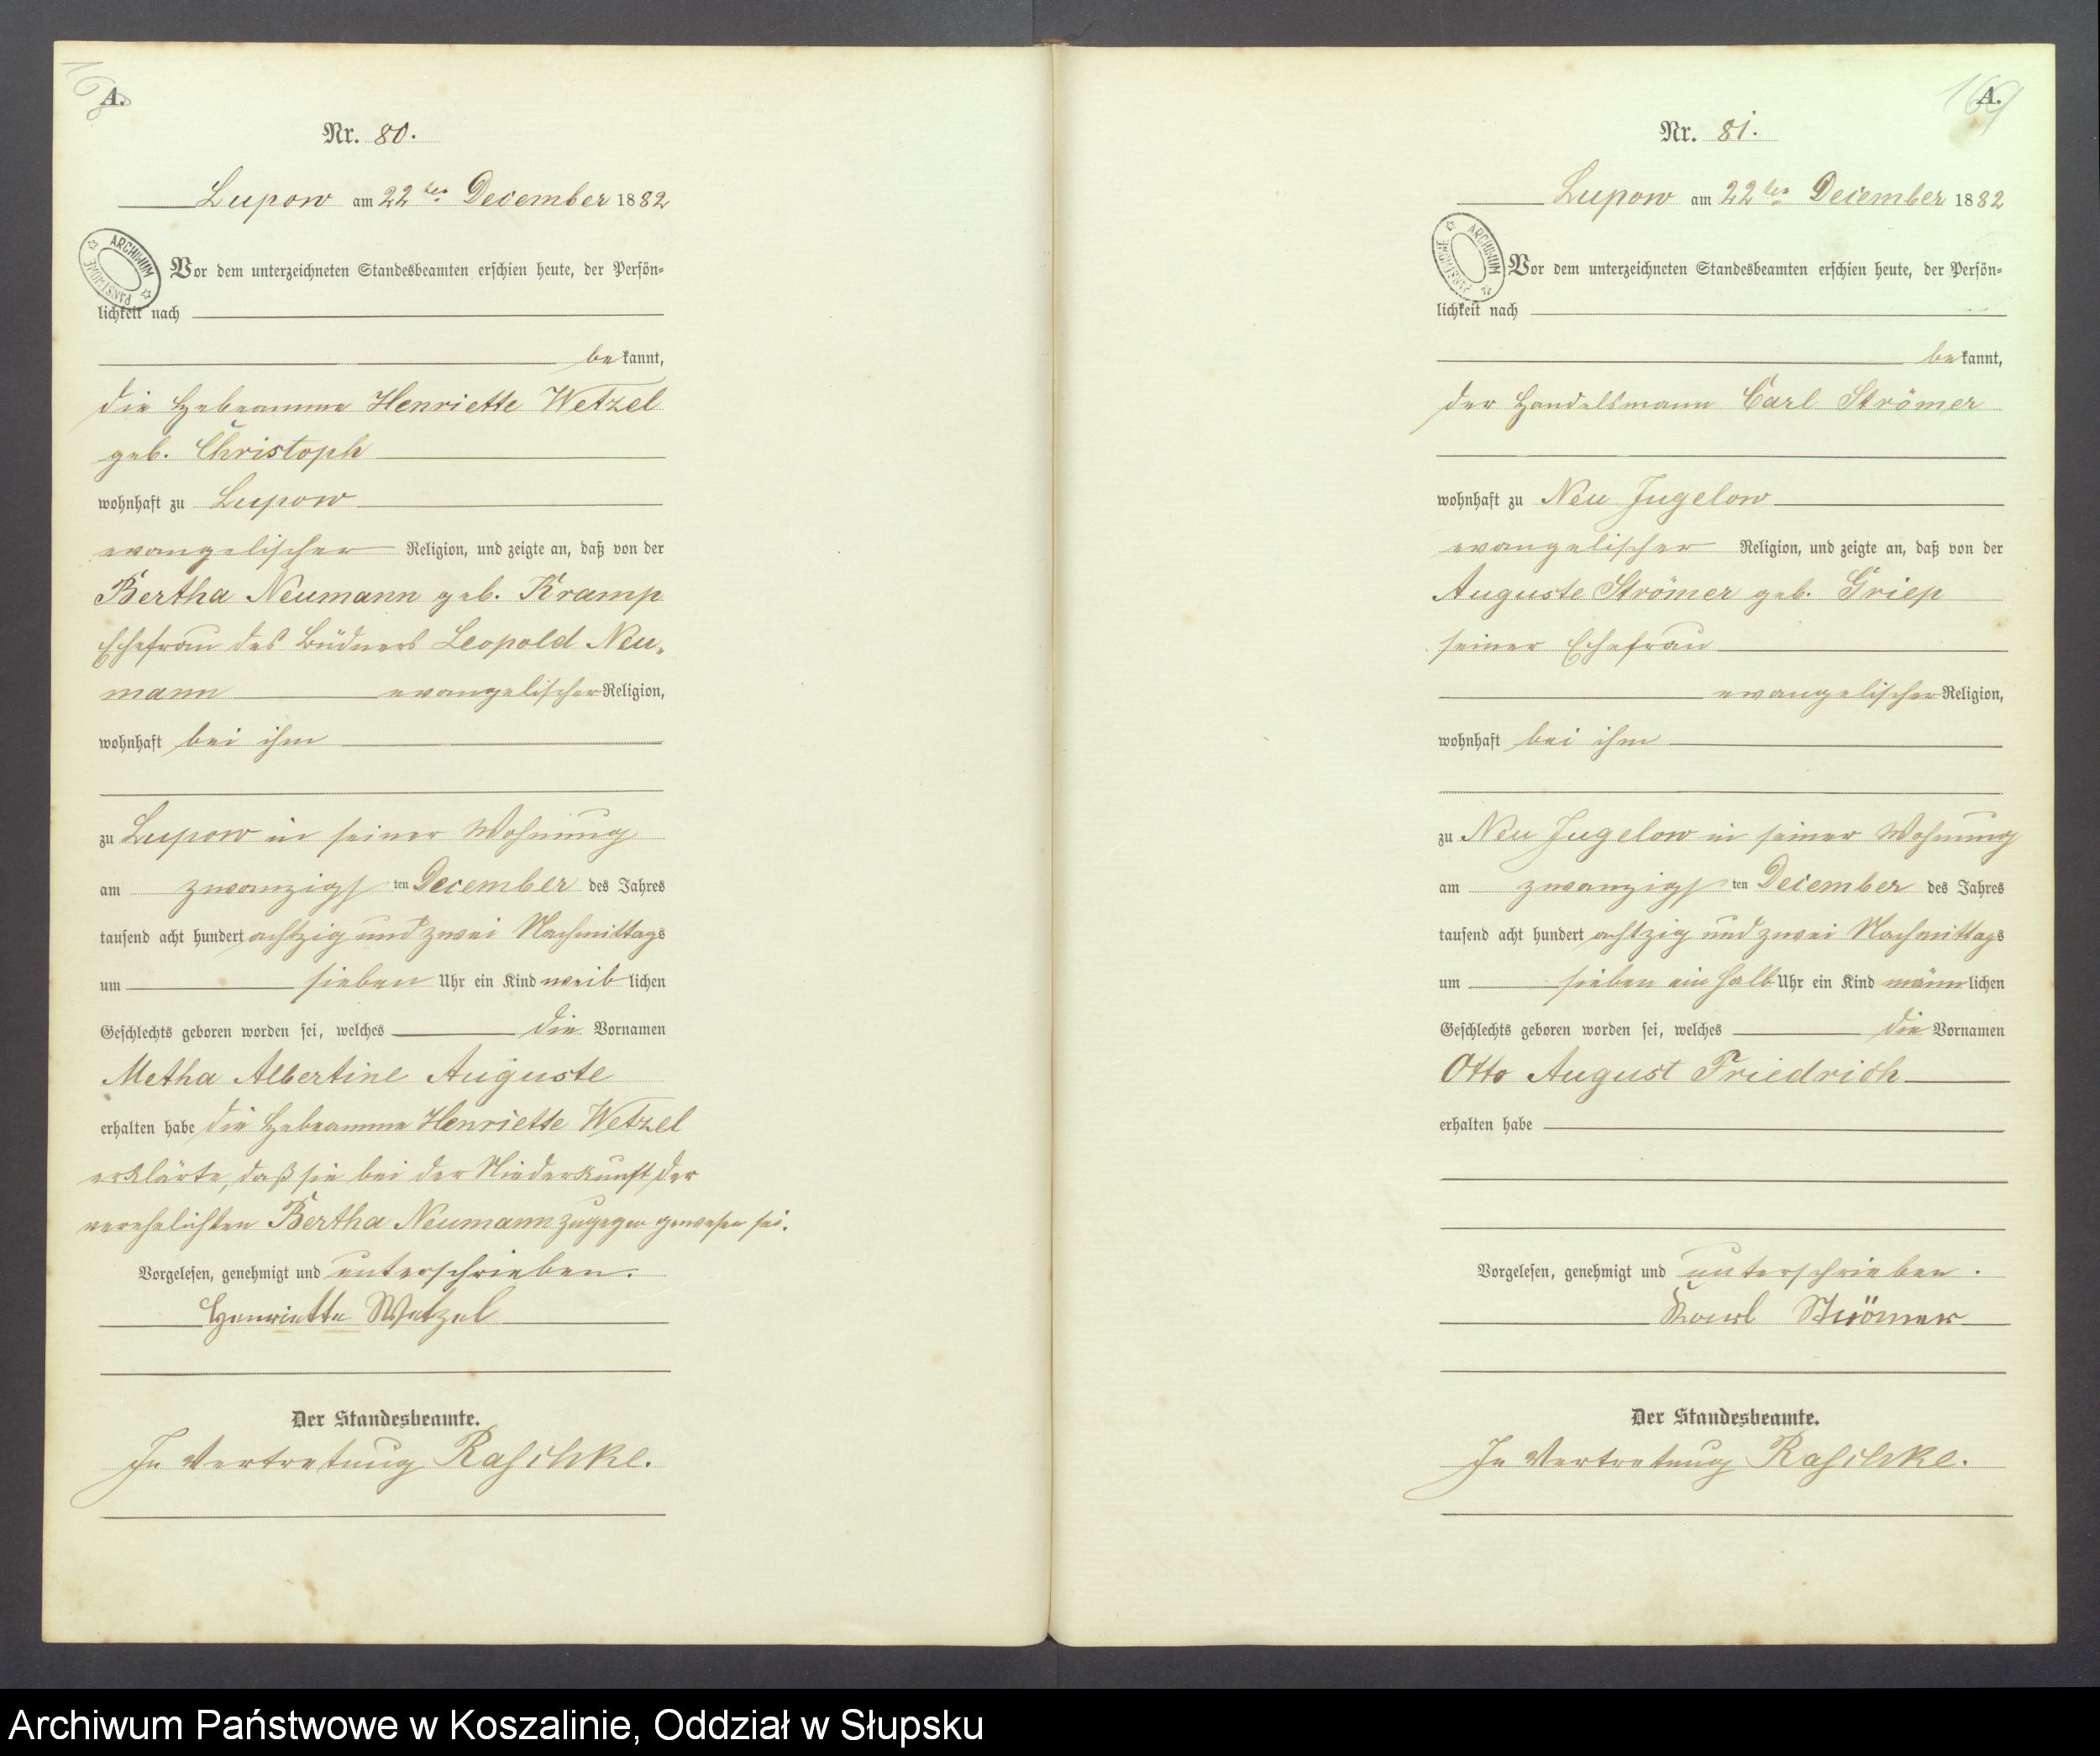 168
A.
Nr. 80.
Lupow am 22ten December 1882
ARCHIWUM PAŃSTWOWE
Vor dem unterzeichneten Standesbeamten erschien heute, der Persön=
lichkeit nach
bekannt,
die Hebeamme Henriette Wetzel
geb. Christoph
wohnhaft zu Lupow
evangelischer Religion, und zeigte an, daß von der
Bertha Neumann geb. Kramp
Ehefrau des Büdners Leopold Neu-
mann evangelischer Religion,
wohnhaft bei ihm
zu Lupow in seiner Wohnung
am zwanzigsten December des Jahres
tausend acht hundert achtzig und zwei Nachmittags
um sieben Uhr ein Kind weiblichen
Geschlechts geboren worden sei, welches die Vornamen
Metha Albertine Auguste
erhalten habe die Hebeamme Henriette Wetzel
erklärte, daß sie bei der Niederkunft der
verehelichten Bertha Neumann zugegen gewesen sei.
Vorgelesen, genehmigt und unterschrieben.
Henriette Wetzel
Der Standesbeamte.
In Vertretung Raschke.
169
A.
Nr. 81.
Lupow am 22ten December 1882
ARCHIWUM PAŃSTWOWE
Vor dem unterzeichneten Standesbeamten erschien heute, der Persön=
lichkeit nach
bekannt,
der Handelsmann Carl Strömer
wohnhaft zu Neu Jugelow
evangelischer Religion, und zeigte an, daß von der
Auguste Strömer geb. Griep
seiner Ehefrau
evangelischer Religion,
wohnhaft bei ihm
zu Neu Jugelow in seiner Wohnung
am zwanzigsten December des Jahres
tausend acht hundert achtzig und zwei Nachmittags
um sieben ein halb Uhr ein Kind männlichen
Geschlechts geboren worden sei, welches die Vornamen
Otto August Friedrich
erhalten habe
Vorgelesen, genehmigt und unterschrieben.
Karl Strömer
Der Standesbeamte.
In Vertretung Raschke.
Archiwum Państwowe w Koszalinie, Oddział w Słupsku